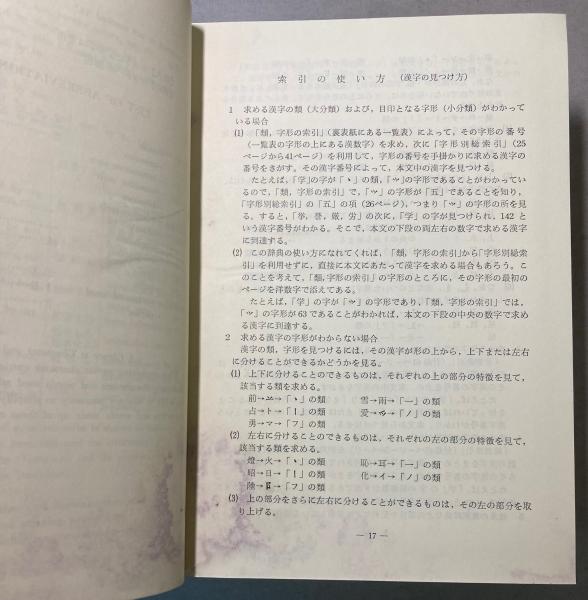 索引の使い方 (漢字の見つけ方)
1 求める漢字の類(大分類)および,目印となる字形(小分類)がわかって
いる場合
(1) 「類,字形の索引」(裏表紙にある一覧表)によって,その字形の番号
(一覧表の字形の上にある漢数字)を求め,次に「字形別総索引」(25
ページから41ページ)を利用して,字形の番号を手掛かりに求める漢字の
番号をさがす。その漢字番号によって,本文中の漢字を見つける。
たとえば,「学」の字が「丶」の類,「⺍」の字形であることがわかってい
るので,「類,字形の索引」で,「⺍」の字形が「五」であることを知り,
「字形別総索引」の「五」の項(26ページ),つまり「⺍」の字形の所を見
る。すると,「挙,誉,厳,労」の次に,「学」の字が見つけられ,142と
いう漢字番号がわかる。そこで,本文の下段の両左右の数字で求める漢字
に到達する。
(2) この辞典の使い方になれてくれば,「類,字形の索引」から「字形別総索
引」を利用せずに,直接に本文にあたって漢字を求める場合もあろう。こ
のことを考えて,「類,字形の索引」の字形のところに,その字形の最初の
ページを洋数字で添えてある。
たとえば,「学」の字が「⺍」の字形であり,「類,字形の索引」では,
「⺍」の字形が63であることがわかれば,本文の下段の中央の数字で求め
る漢字に到達する。
2 求める漢字の字形がわからない場合
漢字の類,字形を見つけるには,その漢字が形の上から,上下または左右
に分けることができるかどうかを見る。
(1) 上下に分けることのできるものは,それぞれの上の部分の特徴を見て,
該当する類を求める。
前→䒑→「丶」の類 雪→雨→「一」の類
占→⺊→「丨」の類 愛→爫→「ノ」の類
勇→マ→「フ」の類
(2) 左右に分けることのできるものは,それぞれの左の部分の特徴を見て,
該当する類を求める。
燈→火→「丶」の類 恥→耳→「一」の類
昭→日→「丨」の類 化→イ→「ノ」の類
険→阝→「フ」の類
(3) 上の部分をさらに左右に分けることができるものは,その左の部分を取
り上げる。
— 17 —